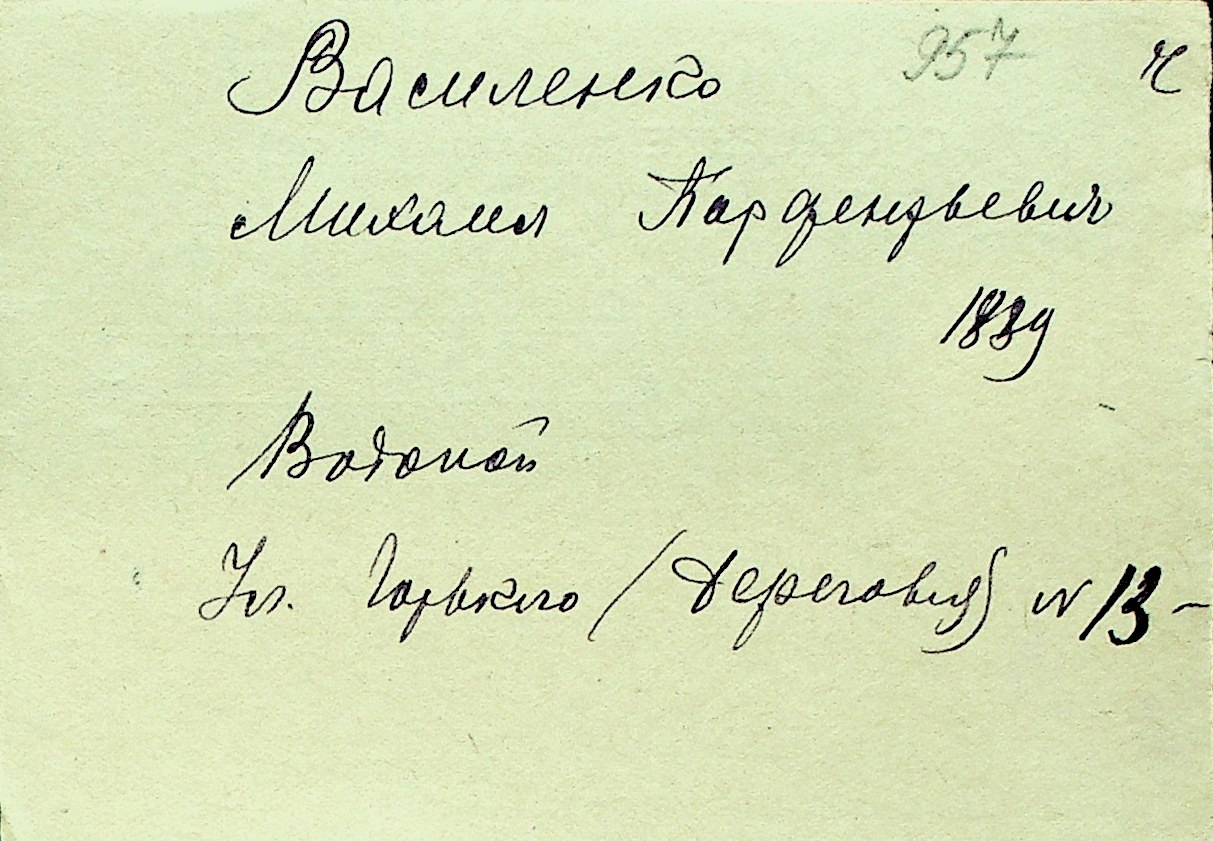 Василенко 957 ч
Михаил Парфентьевич
1889
Водопой
Ул. Горького (Береговая) № 13 -